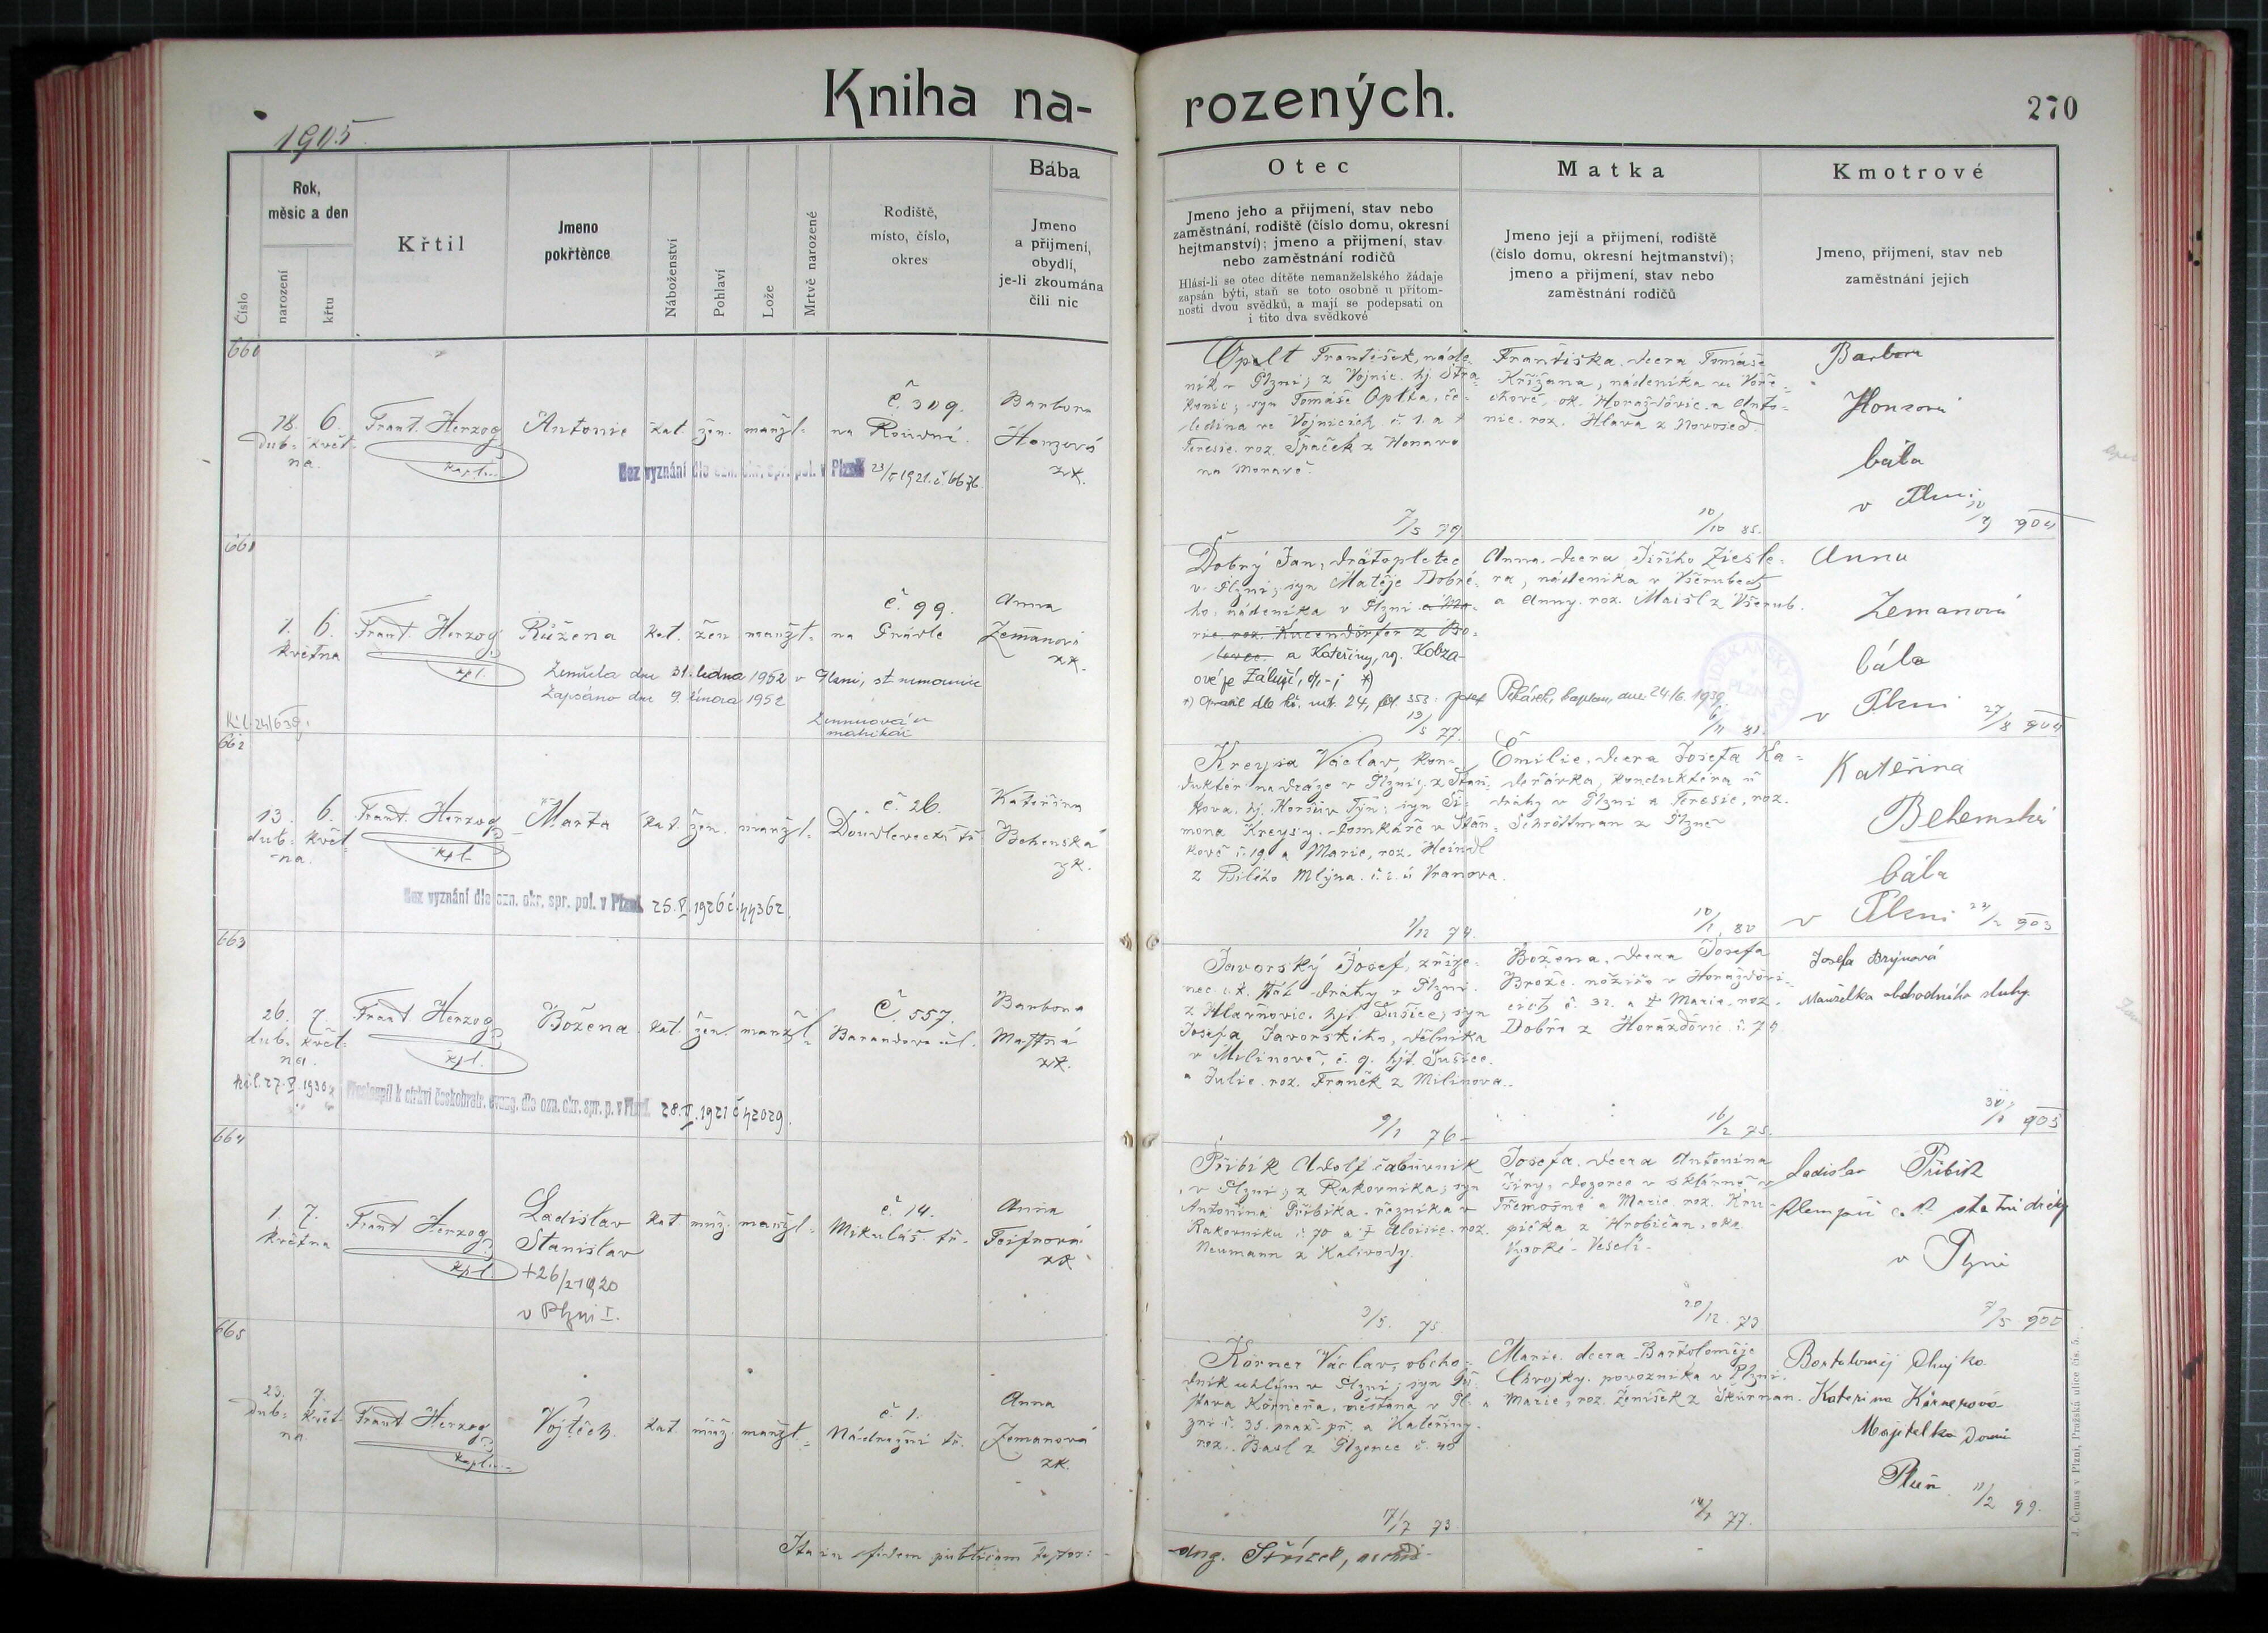 Kniha na-
rozených.
270
1905
Číslo
Rok,
měsíc a den
narození
křtu
Křtil
Jmeno
pokřtěnce
Náboženství
Pohlaví
Lože
Mrtvě narozené
Rodiště,
místo, číslo,
okres
Bába
Jmeno
a příjmení,
obydlí,
je-li zkoumána
čili nic
Otec
Jmeno jeho a příjmení, stav nebo
zaměstnání, rodiště (číslo domu, okresní
hejtmanství); jmeno a příjmení, stav
nebo zaměstnání rodičů
Hlásí-li se otec dítěte nemanželského žádaje
zapsán býti, staň se toto osobně u přítom-
nosti dvou svědků, a mají se podepsati on
i tito dva svědkové
Matka
Jmeno její a příjmení, rodiště
(číslo domu, okresní hejtmanství);
jmeno a příjmení, stav nebo
zaměstnání rodičů
Kmotrové
Jmeno, příjmení, stav neb
zaměstnání jejich
660
18. 6.
dub- květ-
na.
Frant. Herzog
kapl.
Antonie
kat. žen. manžl.
č. 309.
na Roudní.
Barbora
Honzová
zk.
Bez vyznání dle ozn. okr. spr. pol. v Plzni 23/5 1921. č. 6676.
Opalt František, náde-
ník v Plzni; z Vojnic. hj. Stra-
konic; syn Tomáše Oplta, če-
ledína ve Vojnicích č. 1. a †
Teresie. roz. Špaček z
na Moravě.
7/5 79.
Františka. dcera Tomáše
Křižana, nádeníka ve
ok. Horažďovic. a Anto-
nie. roz. Hlava z Novosed.
10/10 85.
Barbora
Honzová
bába
v Plzni
904
661
1. 6.
května
Frant. Herzog
kpl.
Růžena
kat. žen. manžl.
č. 99.
na Prádle
Anna
Zemanová
zk.
Zemřela dne 31. ledna 1952 v Plzni, st. nemocnice
Zapsáno dne 9. února 1952
Dobrý Jan, drátopletec
v Plzni; syn Matěje Dobré-
ho. nádeníka v Plzni a Ma-
rie. roz. Kucendörfer z Bo-
levec. a Kateřiny, roz. Kobza-
ové ze Záluží, *)
19/5 77.
Anna. dcera Jiřího Ziegle-
ra, nádeníka v Všerubech
a Anny. roz. Maišl z Všerub.
6/11 81.
Anna
Zemanová
bába
v Plzni
27/8 904
662
13. 6.
dub- květ-
na.
Frant. Herzog
kpl.
Marta
kat. žen. manžl.
č. 26.
Doudlevecká tř.
Kateřina
Behenská
zk.
Bez vyznání dle ozn. okr. spr. pol. v Plzni. 25. V. 1926 č. 44362.
Kreysa Václav, kon-
duktér na dráze v Plzni, z Staň-
kova, hj. Horšův Týn; syn Ši-
mona Kreysy. domkáře v Staň-
kově č. 19. a Marie, roz. Heindl
z Bílého Mlýna. č. 2. ú Vranova.
1/12 74.
Emilie. dcera Josefa Ka-
deřávka, konduktéra ú
dráhy v Plzni a Teresie, roz.
Schröttman z Plzně
10/1. 80
Kateřina
Behenská
bába
v Plzni
903
663
26. 7.
dub- květ-
na.
Frant. Herzog
kpl.
Božena.
kat. žen. manžl.
Č. 557.
Barandova ul.
Barbora
Mastná
zk.
Přestoupil k církvi českobratr. evang. dle ozn. okr. spr. p. v Plzni. 28. V. 1921 č. 42029.
Javorský Josef, zříze-
nec c. k. stát. dráhy v Plzni.
z Hlavňovic. hjt. Sušice, syn
Josefa Javorského, dělníka
v Milínově, č. 9. hjt. Sušice.
a Julie. roz. Franěk z Milínova.
9/1 76
Božena. dcera Josefa
Brože. nožíře v Horažďovi-
cích č. 32. a † Marie. roz.
Dobř z Horažďovic. č. 75.
16/2 75.
Josefa Brýnová
Manželka obchodního sluhy.
905
664
1. 7.
května
Frant Herzog
kpl.
Ladislav
Stanislav
+26/2 1920
v Plzni I.
kat. muž. manžl.
č. 14.
Mikuláš. tř.
Anna
Toifnová
zk
Přibík Adolf čalouník
v Plzni; z Rakovníka; syn
Antonína Přibíka. řezníka v
Rakovníku č. 70 a † Aloisie. roz.
Neumann z Kalivody.
3/5. 75.
Josefa. dcera Antonína
dozorce v sklárně v
Třemošné a Marie roz. Kru-
pička z Hrobičan, okr.
Vysoké-Veselí.
20/12. 79.
Ladislav Přibík
klempíř c. k. státní dráhy
v Plzni
9/5 900
665
23. 7.
dub- květ-
na
Frant Herzog
kapl.
Vojtěch.
kat. muž. manžl.
č. 1.
Nádražní tř.
Anna
Zemanová
zk.
Körner Václav, obcho-
dník uhlím v Plzni; syn Gu-
stava Körnera, měšťana v Pl-
zni č. 35. praž. př. a Kateřiny.
roz. Basl z Plzence č. 48
17/7 73.
Marie. dcera Bartoloměje
Chvojky. povozníka v Plzni
a Marie, roz. Ženíšek z Škvrňan.
77.
Bartoloměj Chvojka
Kateřina Körnerová
Majitelka domu
Plzeň
11/2 99.
Ita in fidem publicam testor:
Aug. Střízek, archid.
J. Čermus v Plzni, Pražská ulice čís. 5.